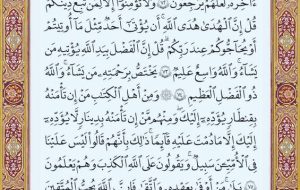 ءَاخِرَهُۥ لَعَلَّهُمْ يَرْجِعُونَ ۝ وَلَا تُؤْمِنُوٓا۟ إِلَّا لِمَن تَبِعَ دِينَكُمْ
قُلْ إِنَّ ٱلْهُدَىٰ هُدَى ٱللَّهِ أَن يُؤْتَىٰٓ أَحَدٌ مِّثْلَ مَآ أُوتِيتُمْ
أَوْ يُحَآجُّوكُمْ عِندَ رَبِّكُمْ قُلْ إِنَّ ٱلْفَضْلَ بِيَدِ ٱللَّهِ يُؤْتِيهِ مَن
يَشَآءُ وَٱللَّهُ وَٰسِعٌ عَلِيمٌ ۝ يَخْتَصُّ بِرَحْمَتِهِۦ مَن يَشَآءُ وَٱللَّهُ
ذُو ٱلْفَضْلِ ٱلْعَظِيمِ ۝ وَمِنْ أَهْلِ ٱلْكِتَٰبِ مَنْ إِن تَأْمَنْهُ
بِقِنطَارٍ يُؤَدِّهِۦٓ إِلَيْكَ وَمِنْهُم مَّنْ إِن تَأْمَنْهُ بِدِينَارٍ لَّا يُؤَدِّهِۦٓ
إِلَيْكَ إِلَّا مَا دُمْتَ عَلَيْهِ قَآئِمًا ذَٰلِكَ بِأَنَّهُمْ قَالُوا۟ لَيْسَ عَلَيْنَا
فِى ٱلْأُمِّيِّـۧنَ سَبِيلٌ وَيَقُولُونَ عَلَى ٱللَّهِ ٱلْكَذِبَ وَهُمْ يَعْلَمُونَ
۝ بَلَىٰ مَنْ أَوْفَىٰ بِعَهْدِهِۦ وَٱتَّقَىٰ فَإِنَّ ٱللَّهَ يُحِبُّ ٱلْمُتَّقِينَ